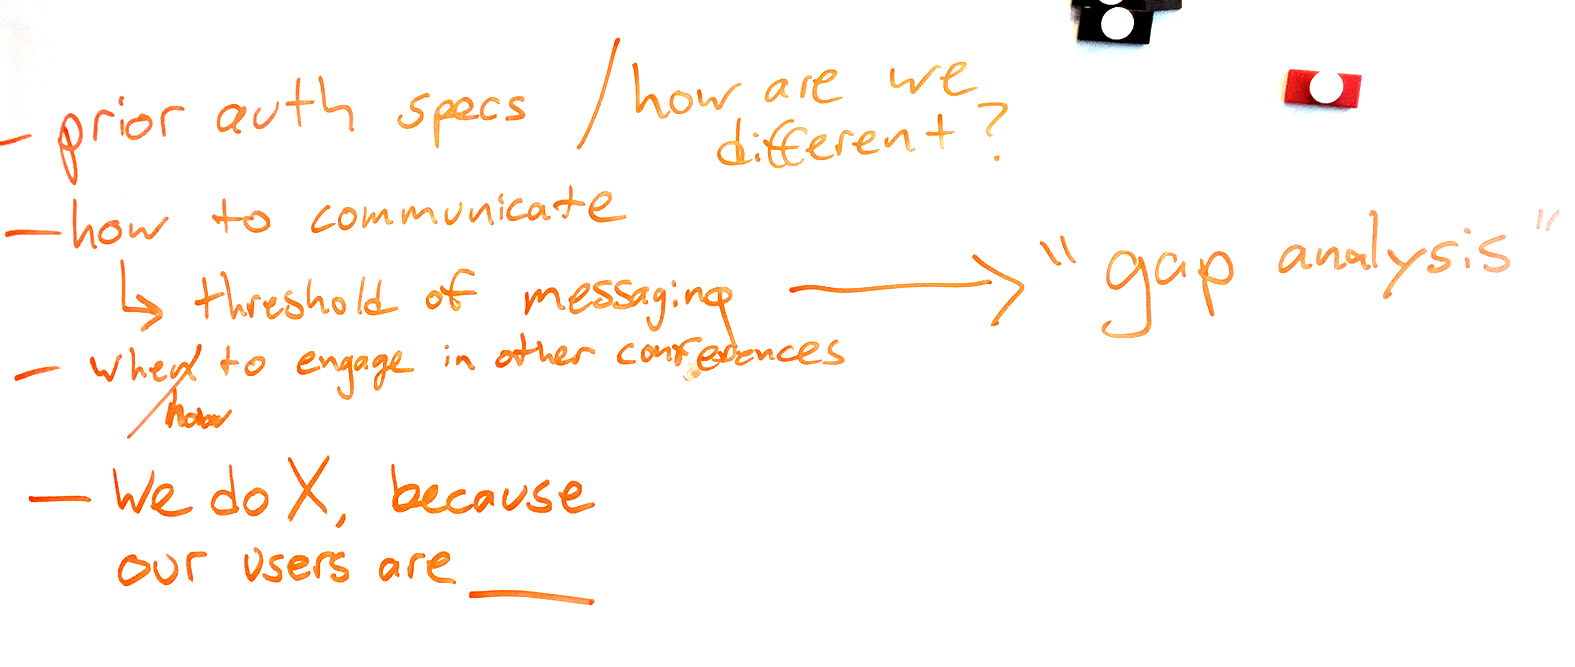 - prior auth specs / how are we
different?
- how to communicate
↳ threshold of messaging → "gap analysis"
- when to engage in other conferences
/how
- We do X, because
our users are ____